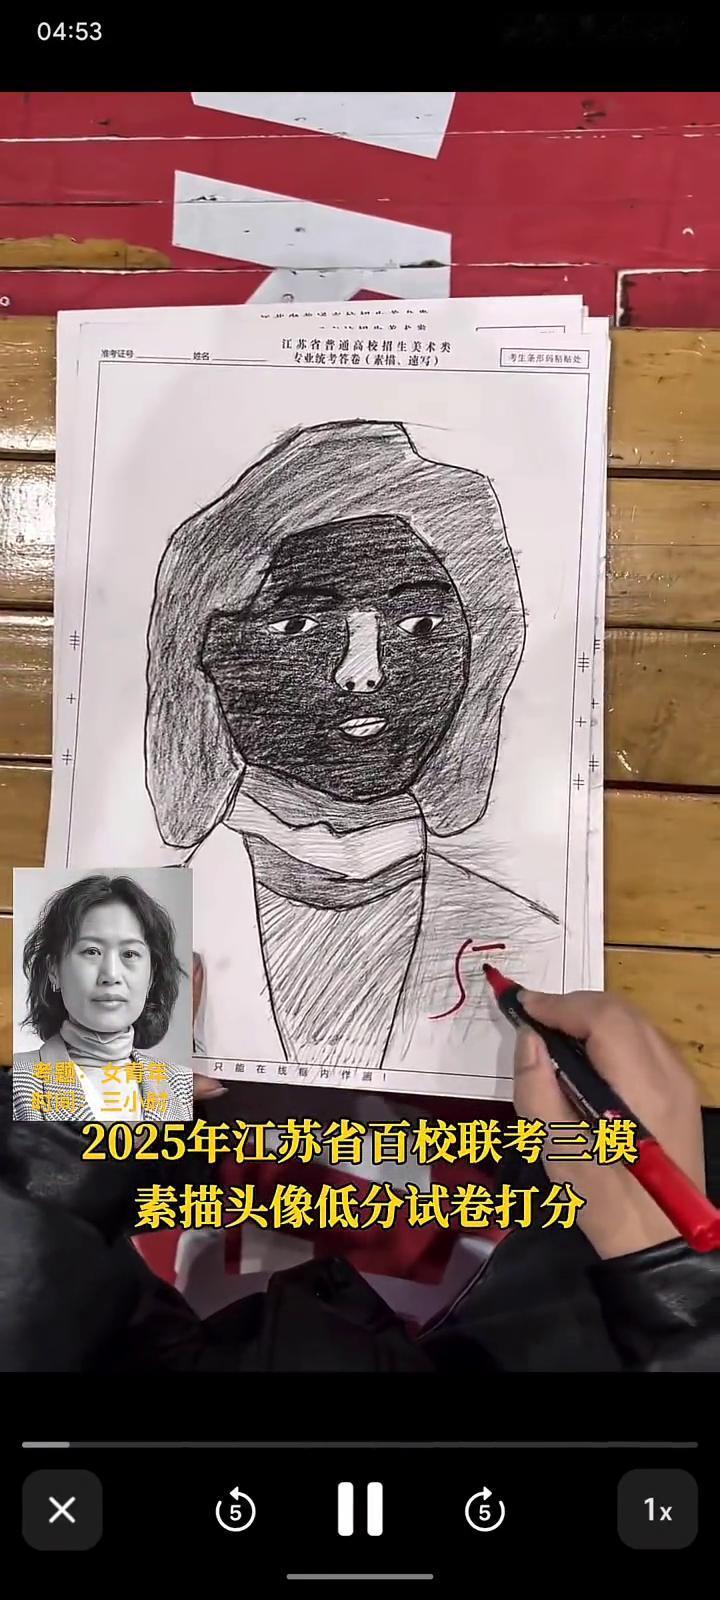 04:53
江苏省普通高校招生美术类
准考证号 姓名 专业统考答卷（素描、速写） 考生条形码粘贴处
5
只能在线框内作画！
考题：女青年
时间：三小时
2025年江苏省百校联考三模
素描头像低分试卷打分
5 5 1x